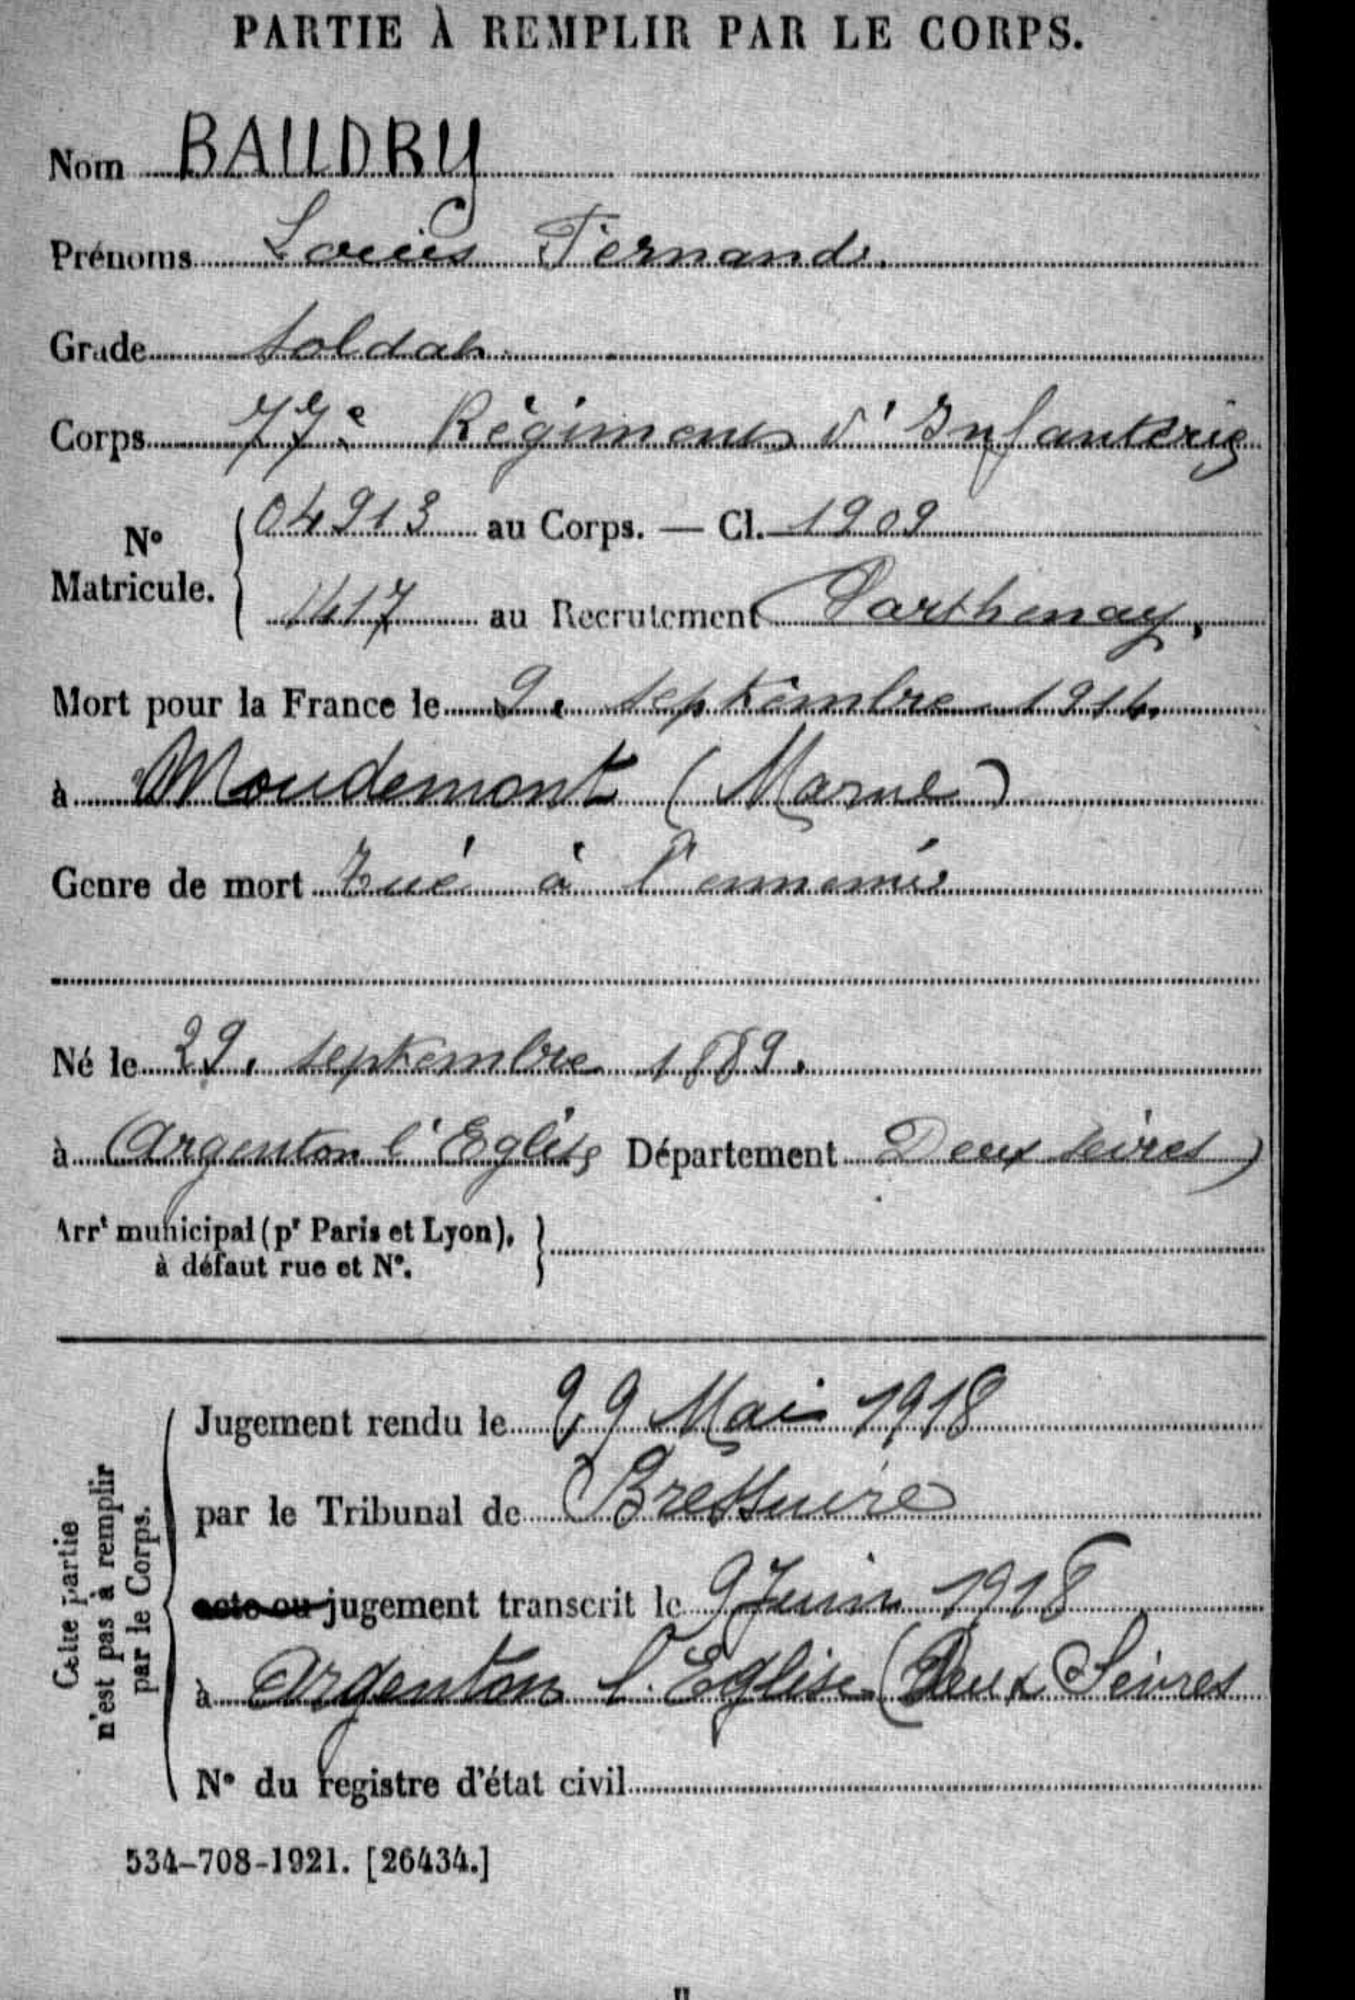 PARTIE À REMPLIR PAR LE CORPS.
Nom BAUDRY
Prénoms Louis Fernand.
Grade soldat.
Corps 77e Régiment d'Infanterie
No Matricule. 04913 au Corps. — Cl. 1909
1417 au Recrutement Parthenay,
Mort pour la France le 9. septembre 1914.
à Moudemont (Marne)
Genre de mort Tué à l'ennemi
Né le 29. septembre 1889.
à (Argenton l'Eglise Département Deux Sèvres)
Arrt municipal (pr Paris et Lyon),
à défaut rue et No.
Jugement rendu le 29 Mai 1918
par le Tribunal de Bressuire
acte ou jugement transcrit le 9 Juin 1918
à Argenton l'Eglise (Deux Sèvres
No du registre d'état civil
Cette partie
n'est pas à remplir
par le Corps.
534-708-1921. [26434.]